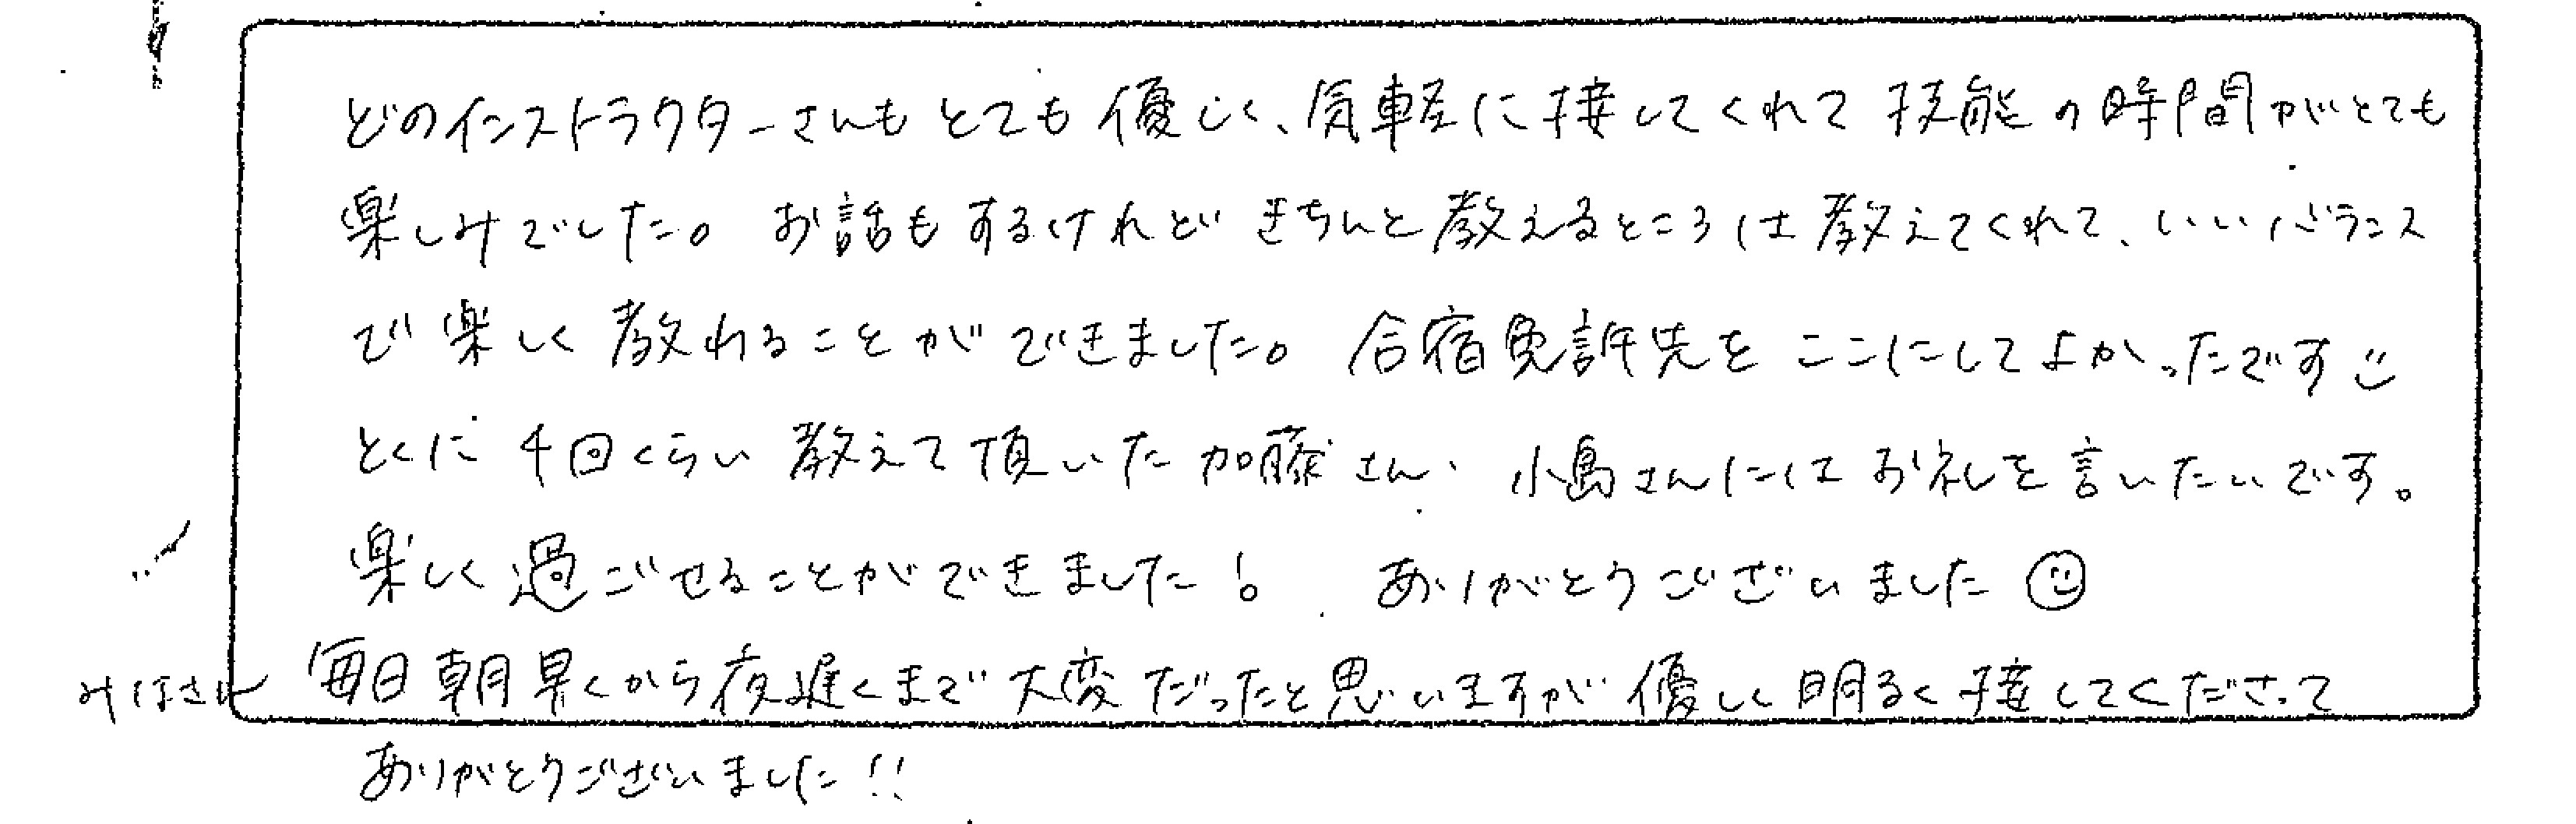 どのインストラクターさんもとても優しく、気軽に接してくれて技能の時間がとても
楽しみでした。お話もするけれどきちんと教えるところは教えてくれて、いいバランス
で楽しく教われることができました。合宿免許先をここにしてよかったです
とくに4回くらい教えて頂いた加藤さん、小島さんにはお礼を言いたいです。
楽しく過ごせることができました! ありがとうございました
みほさん 毎日朝早くから夜遅くまで大変だったと思いますが優しく明るく接してくださって
ありがとうございました!!